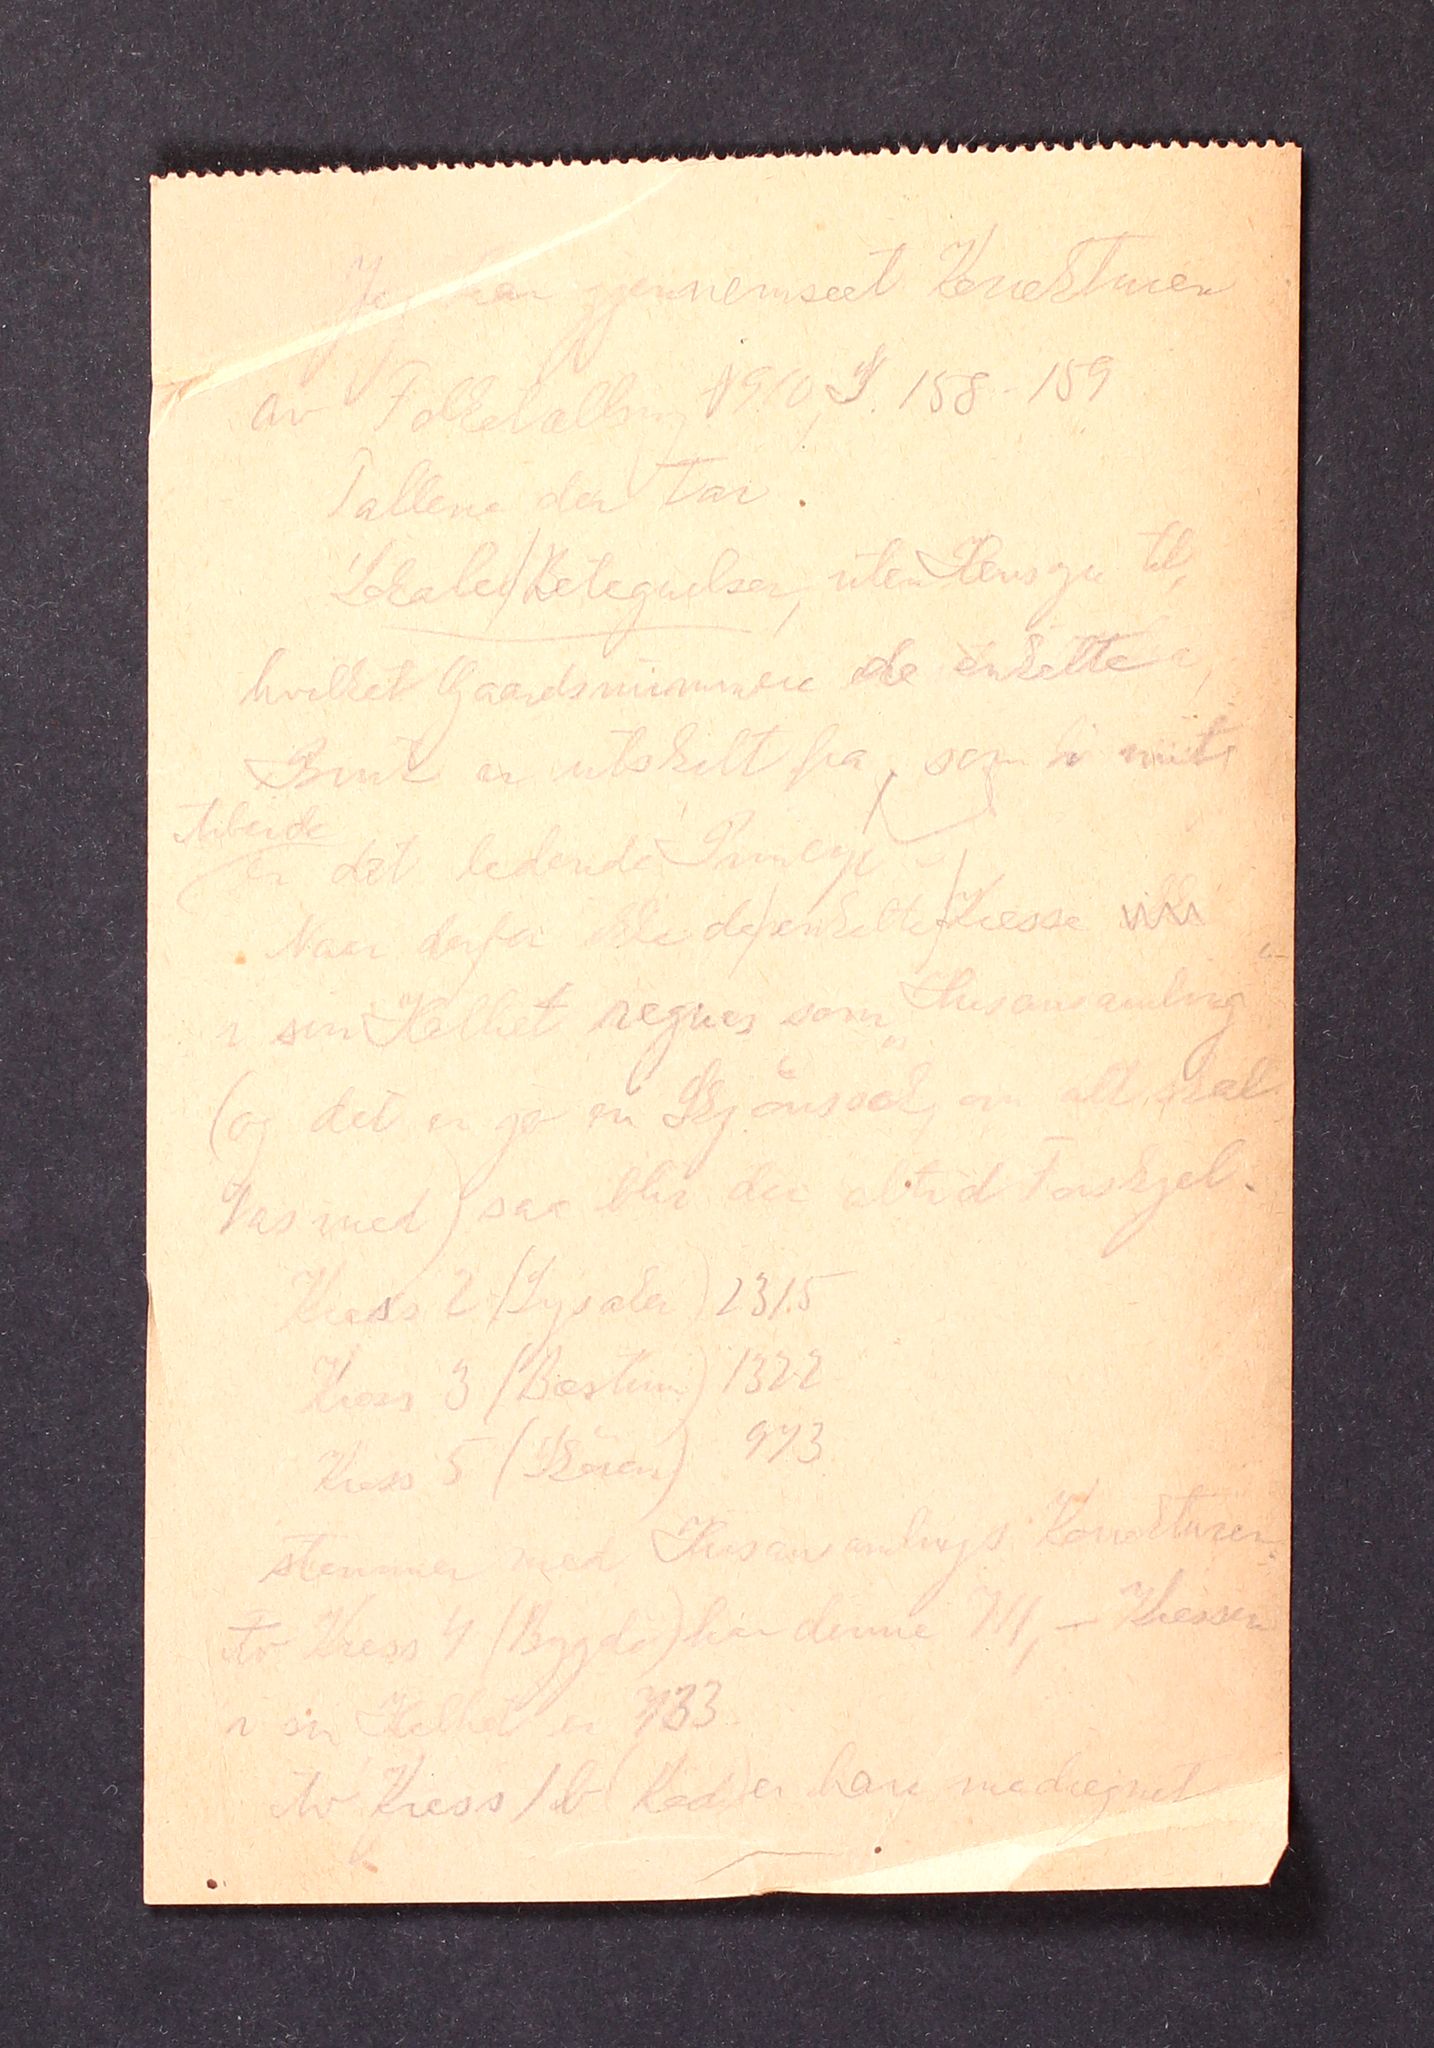 Jeg har gjennemseet Korrekturen
av Folketælling 1910, S. 158-159
Tallene der tar
Lokale Betegnelser, uten Hensyn til,
hvilket Gaardsnummer de enkelte
Bruk er utskilt fra, som i mit
Arbeide
er det ledende Princip -
Naar derfor ikke de enkelte Kresse
i sin Helhet regnes som "Husansamling"
(og det er jo en Skjönssak, om alt skal
tas med) saa blir der altid Forskjel.
Kress 2 (Lysaker) 2315
Kress 3 (Bæstum) 1322
Kress 5 (Sköien) 973
stemmer med Husansamlings Korrekturen.
Av Kress 4 (Bygdö) har denne 711, - Kressen
i sin Helhet er 733
Av Kress 1 b er bare medregnet